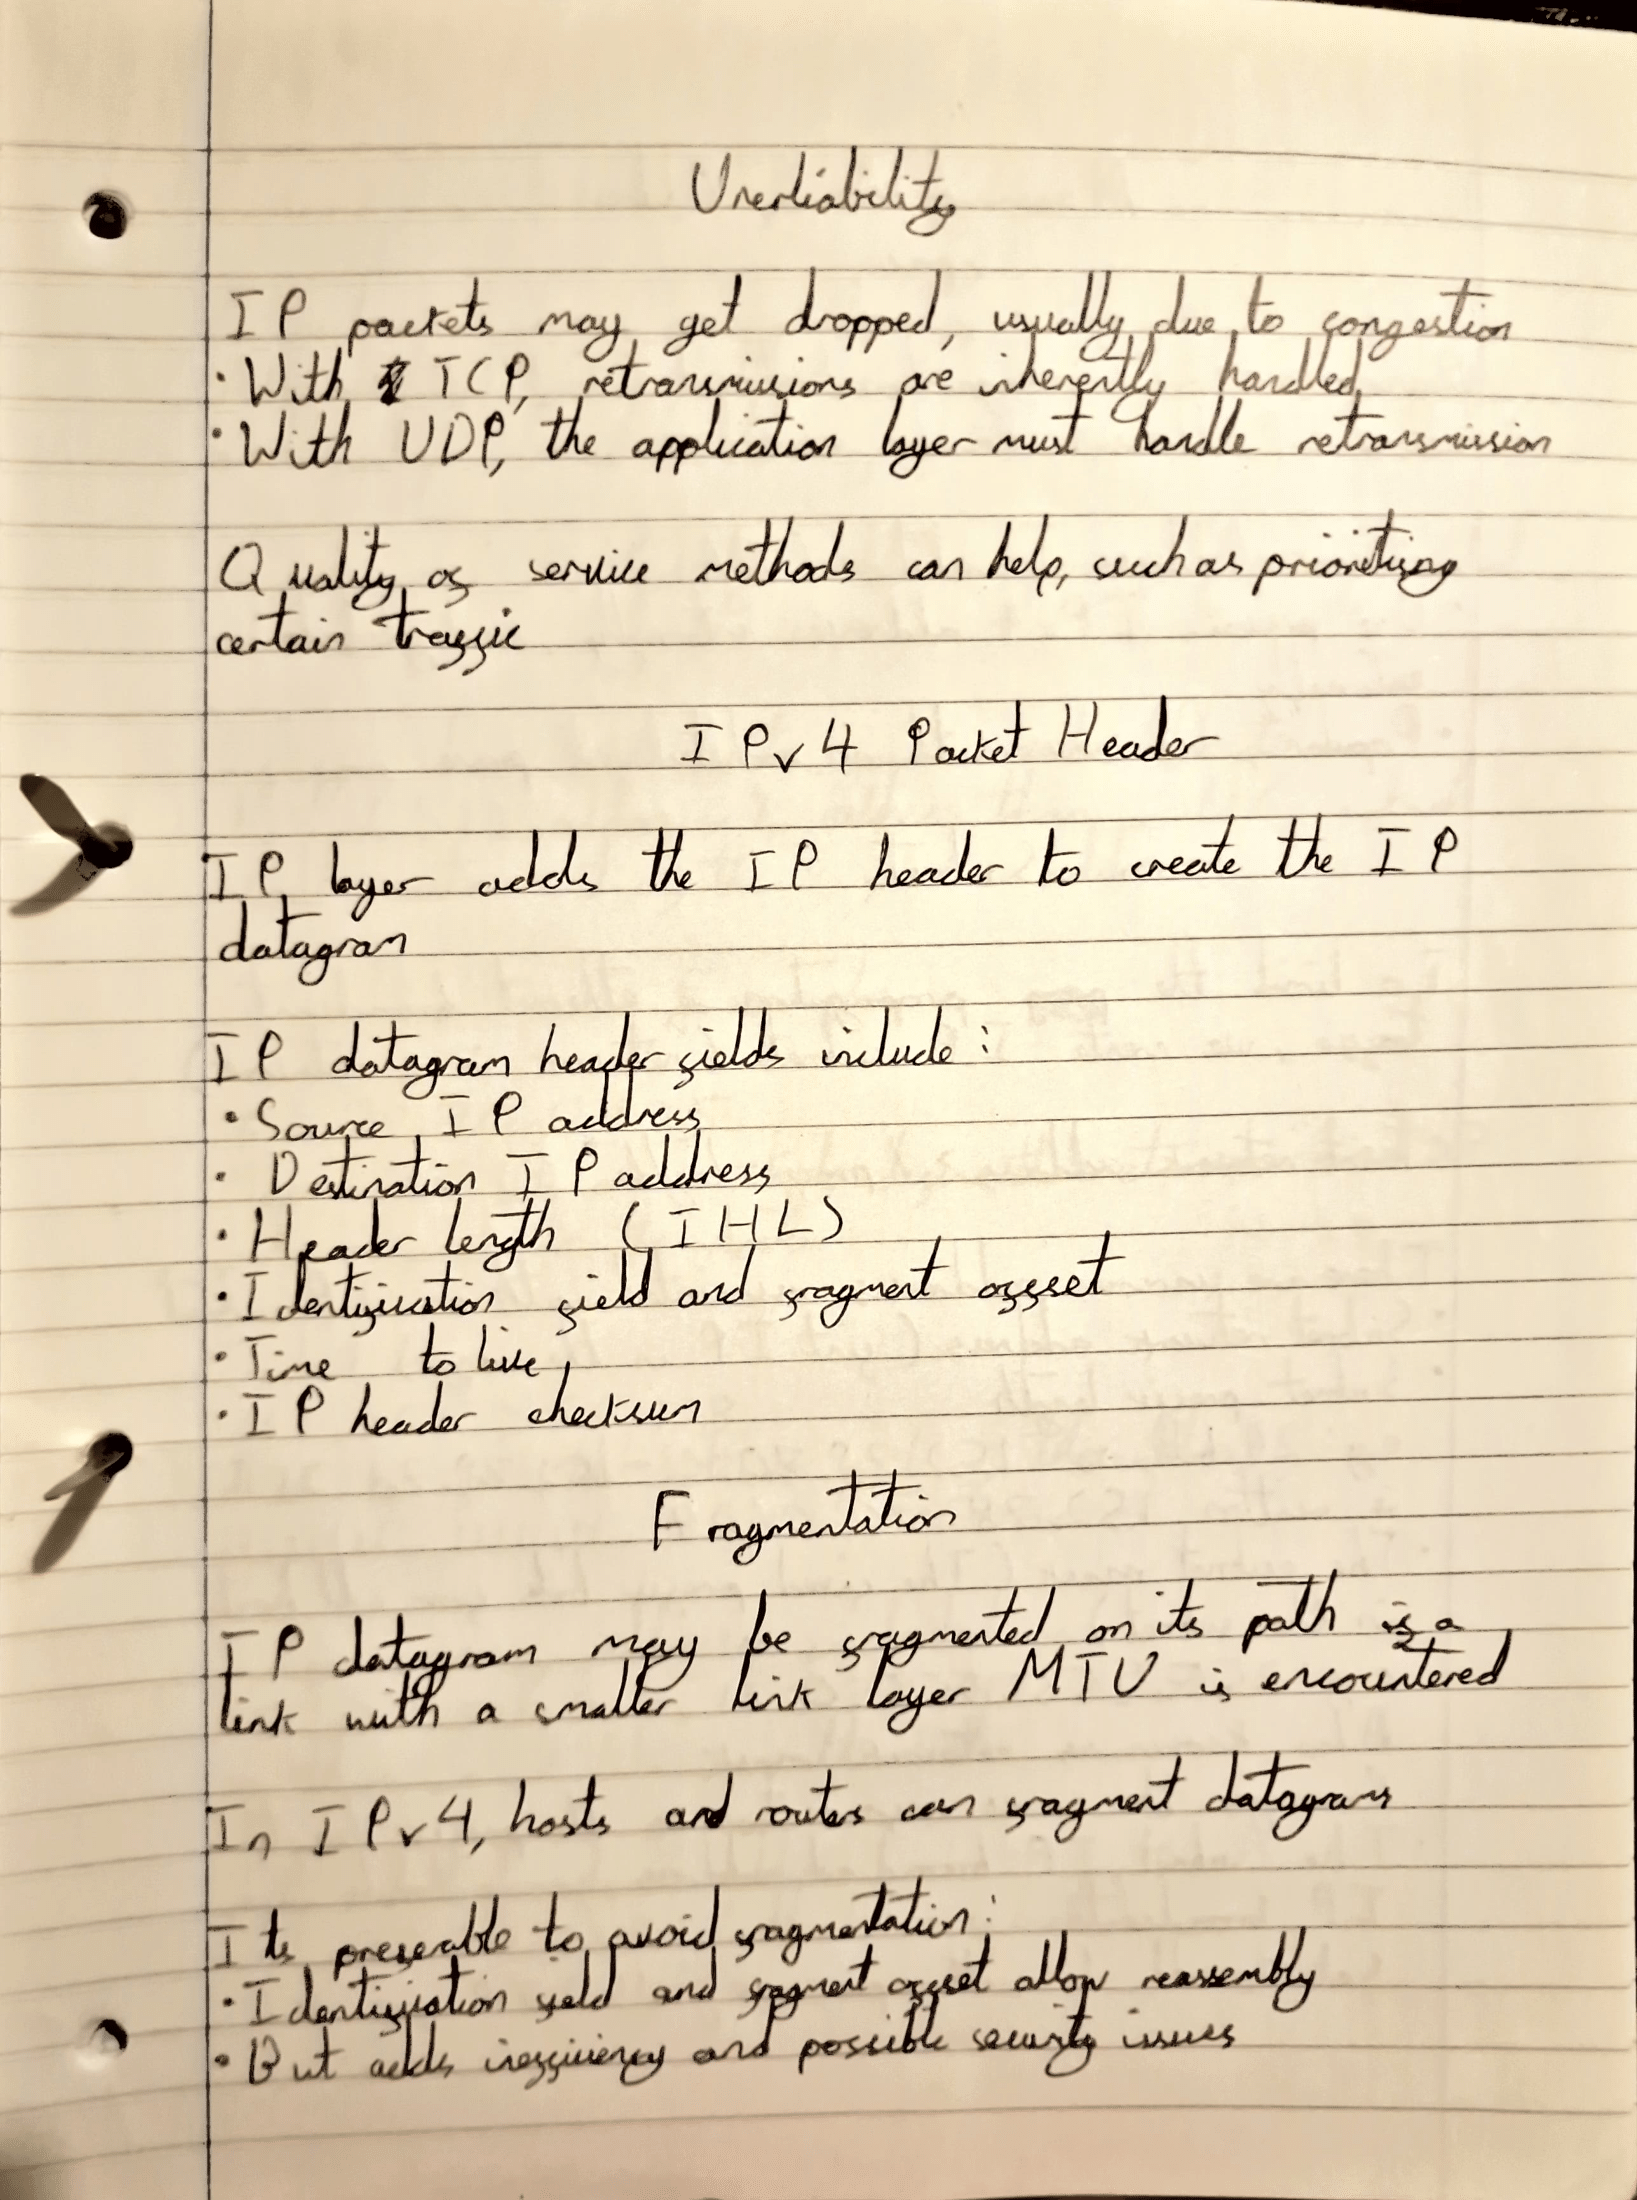 Unerliability
IP packets may get dropped, usually due to congestion
· With TCP, retransmissions are inherently handled
· With UDP, the application layer must handle retransmission
Quality of service methods can help, such as prioritising
certain traffic
IPv4 Packet Header
IP layer adds the IP header to create the IP
datagram
IP datagram header fields include:
· Source IP address
· Destination IP address
· Header length (IHL)
· Identification field and fragment offset
· Time to live
· IP header checksum
Fragmentation
IP datagram may be fragmented on its path if a
link with a smaller link layer MTU is encountered
In IPv4, hosts and routers can fragment datagrams
Its preferable to avoid fragmentation:
· Identification field and fragment offset allow reassembly
· But adds inefficiency and possible security issues